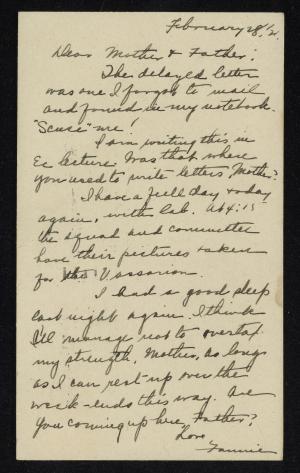 February 28/21.
Dear Mother & Father:
The delayed letter
was one I forgot to mail
and found in my notebook.
"Scuse" me!
I am writing this in
Ec lecture. Was that where
you used to write letters Mother?
I have a full day today
again, with lab. At 4:15
the squad and committee
have their pictures taken
for the Vassarion.
I had a good sleep
last night again. I think
I'll manage not to overtax
my strength, Mother, as long
as I can rest up over the
week-ends this way. Are
you coming up here, Father?
Love
Fannie